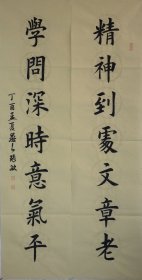 精神到處文章老
學問深時意氣平
丁酉孟夏